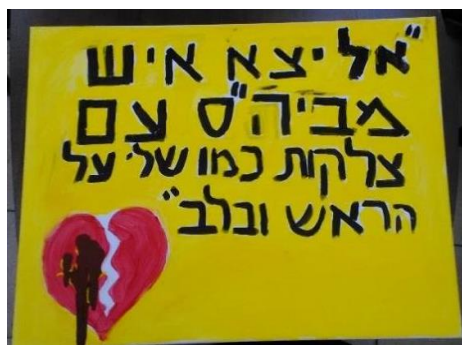 "אל יצא איש
מביה"ס עם
צלקות כמו שלי על
הראש ובלב"